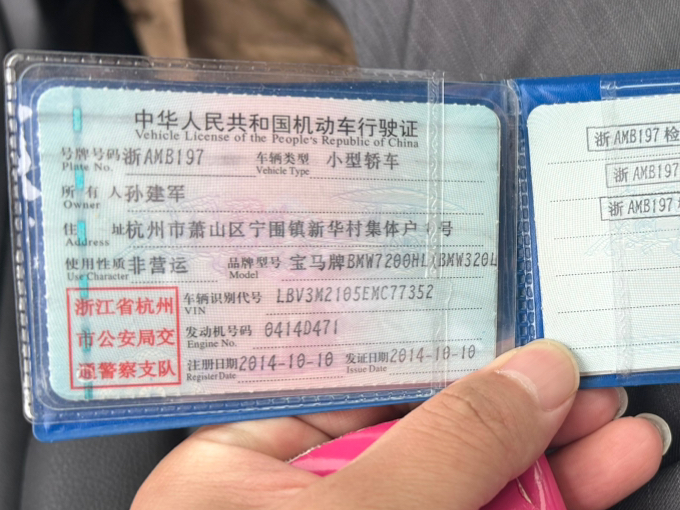 中华人民共和国机动车行驶证
Vehicle License of the People's Republic of China
号牌号码 浙AMB197 车辆类型 小型轿车
Plate No. Vehicle Type
所有人 孙建军
Owner
住址 杭州市萧山区宁围镇新华村集体户 号
Address
使用性质 非营运 品牌型号 宝马牌BMW7200HL(BMW320L
Use Character Model
浙江省杭州
市公安局交
通警察支队
车辆识别代号 LBV3M2105EMC77352
VIN
发动机号码 0414D471
Engine No.
注册日期 2014-10-10 发证日期 2014-10-10
Register Date Issue Date
浙AMB197 检
浙AMB197
浙AMB197